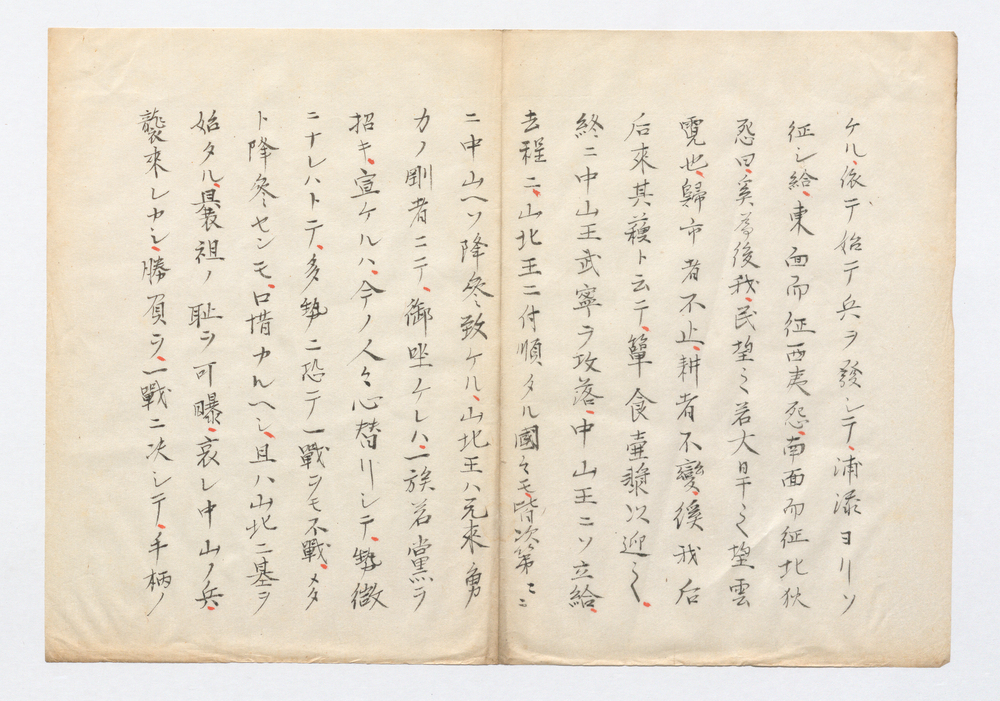 ケル、依テ始テ兵ヲ發シテ、浦添ヨリソ
征シ給、東面而征西夷怨、南面而征北狄
怨曰、奚為後我、民望之若大旱之望雲
霓也、歸市者不止、耕者不變、徯我后
后來其蘓ト云テ、簞食壷漿以迎之、
終ニ中山王武寧ヲ攻落、中山王ニソ立給、
去程ニ、山北王ニ付順タル國々モ、皆次第ニニ
ニ中山ヘソ降參致ケル、山北王ハ元來勇
力ノ剛者ニテ、御坐ケレハ、一族若黨ヲ
招キ、宣ケルハ、今ノ人々心替リシテ、勢微
ニナレハトテ、多勢ニ恐テ一戰ヲモ不戰、メタ
ト降參センモ、口惜カルヘシ、且ハ山北ニ墓ヲ
始タル、曩祖ノ耻ヲ可曝、哀レ中山ノ兵、
襲來レカシ、勝負ヲ、一戰ニ决シテ、手柄ノ